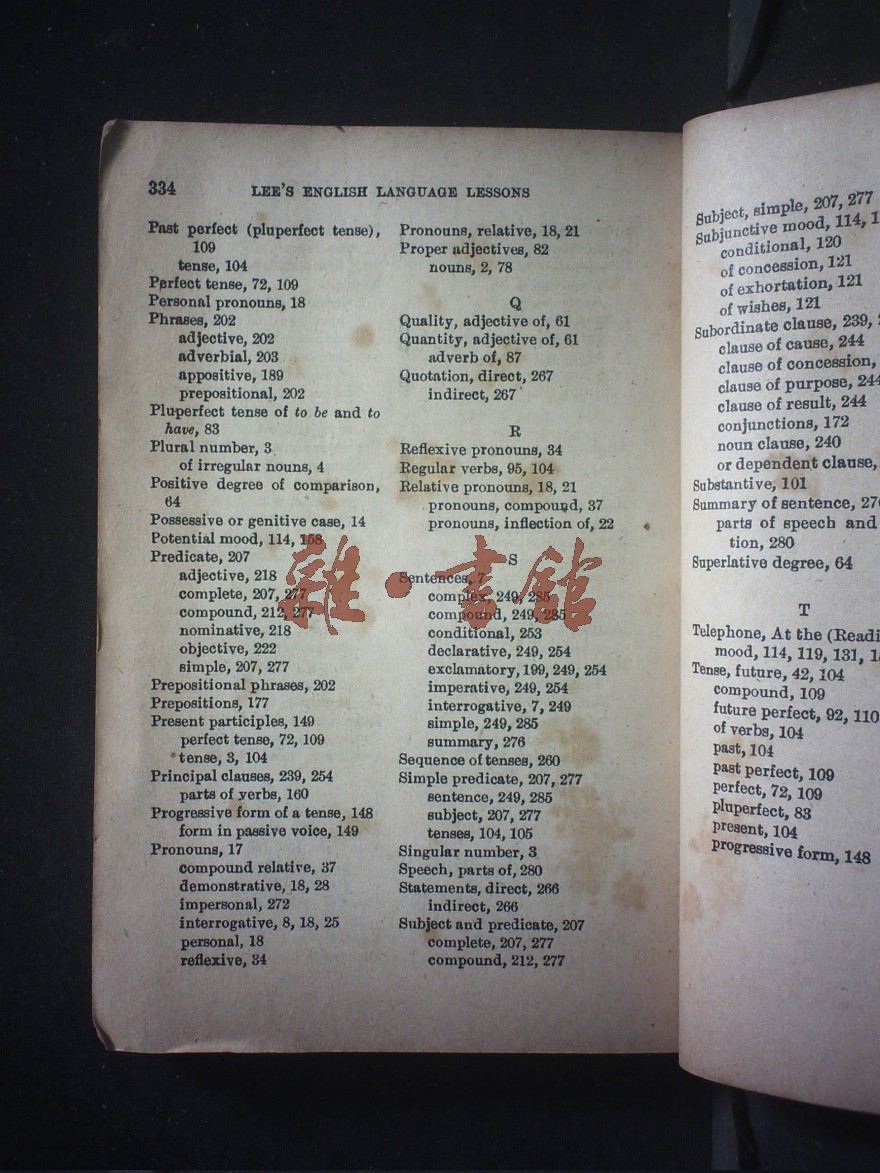 334
LEE'S ENGLISH LANGUAGE LESSONS
Past perfect (pluperfect tense),
109
tense, 104
Perfect tense, 72, 109
Personal pronouns, 18
Phrases, 202
adjective, 202
adverbial, 203
appositive, 189
prepositional, 202
Pluperfect tense of to be and to
have, 83
Plural number, 3
of irregular nouns, 4
Positive degree of comparison,
64
Possessive or genitive case, 14
Potential mood, 114, 158
Predicate, 207
adjective, 218
complete, 207, 277
compound, 212, 277
nominative, 218
objective, 222
simple, 207, 277
Prepositional phrases, 202
Prepositions, 177
Present participles, 149
perfect tense, 72, 109
tense, 3, 104
Principal clauses, 239, 254
parts of verbs, 160
Progressive form of a tense, 148
form in passive voice, 149
Pronouns, 17
compound relative, 37
demonstrative, 18, 28
impersonal, 272
interrogative, 8, 18, 25
personal, 18
reflexive, 34
Pronouns, relative, 18, 21
Proper adjectives, 82
nouns, 2, 78
Q
Quality, adjective of, 61
Quantity, adjective of, 61
adverb of, 87
Quotation, direct, 267
indirect, 267
R
Reflexive pronouns, 34
Regular verbs, 95, 104
Relative pronouns, 18, 21
pronouns, compound, 37
pronouns, inflection of, 22
S
Sentences, 7
complex, 249, 285
compound, 249, 285
conditional, 253
declarative, 249, 254
exclamatory, 199, 249, 254
imperative, 249, 254
interrogative, 7, 249
simple, 249, 285
summary, 276
Sequence of tenses, 260
Simple predicate, 207, 277
sentence, 249, 285
subject, 207, 277
tenses, 104, 105
Singular number, 3
Speech, parts of, 280
Statements, direct, 266
indirect, 266
Subject and predicate, 207
complete, 207, 277
compound, 212, 277
雜·書館
Subject, simple, 207, 277
Subjunctive mood, 114,
conditional, 120
of concession, 121
of exhortation, 121
of wishes, 121
Subordinate clause, 239,
clause of cause, 244
clause of concession,
clause of purpose, 244
clause of result, 244
conjunctions, 172
noun clause, 240
or dependent clause,
Substantive, 101
Summary of sentence,
parts of speech and
tion, 280
Superlative degree, 64
T
Telephone, At the
mood, 114, 119, 131,
Tense, future, 42, 104
compound, 109
future perfect, 92, 110
of verbs, 104
past, 104
past perfect, 109
perfect, 72, 109
pluperfect, 83
present, 104
progressive form, 148